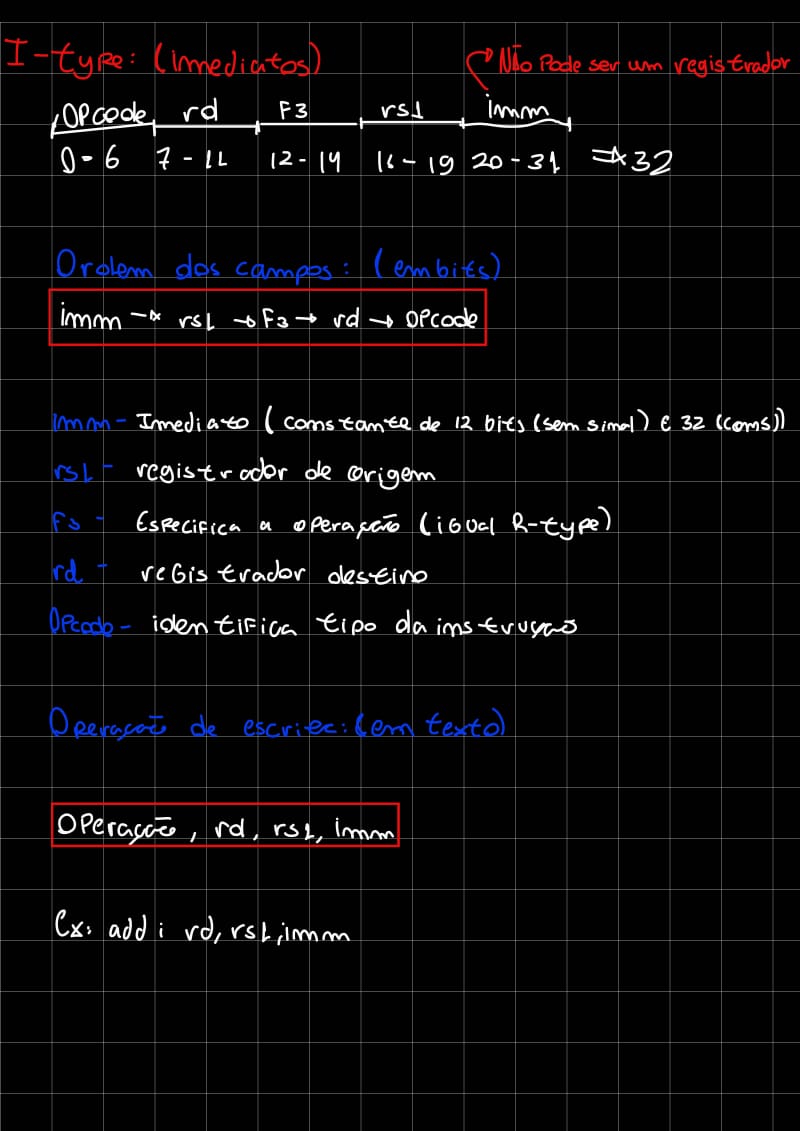 I-type: (imediatos)
Não Pode ser um registrador
OPcode rd F3 rs1 imm
0-6 7-11 12-14 16-19 20-31 => 32
Ordem dos campos: (em bits)
imm → rs1 → F3 → rd → OPcode
imm - Imediato (constante de 12 bits (sem sinal) e 32 (com s))
rs1 - registrador de origem
F3 - Especifica a operação (igual R-type)
rd - registrador destino
OPcode - identifica tipo da instrução
Operação de escrita: (em texto)
OPeração, rd, rs1, imm
Ex: addi rd, rs1, imm